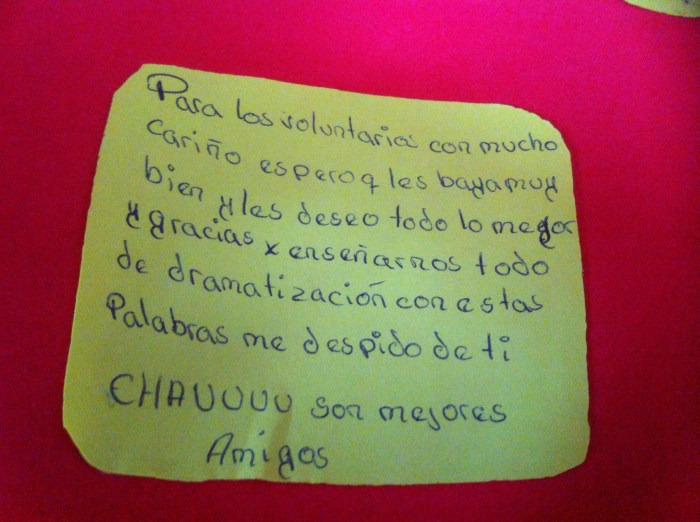 Para los voluntarios con mucho
cariño espero q les baya muy
bien y les deseo todo lo mejor
y gracias x enseñarnos todo
de dramatización con estas
Palabras me despido de ti
CHAUUUU son mejores
Amigos